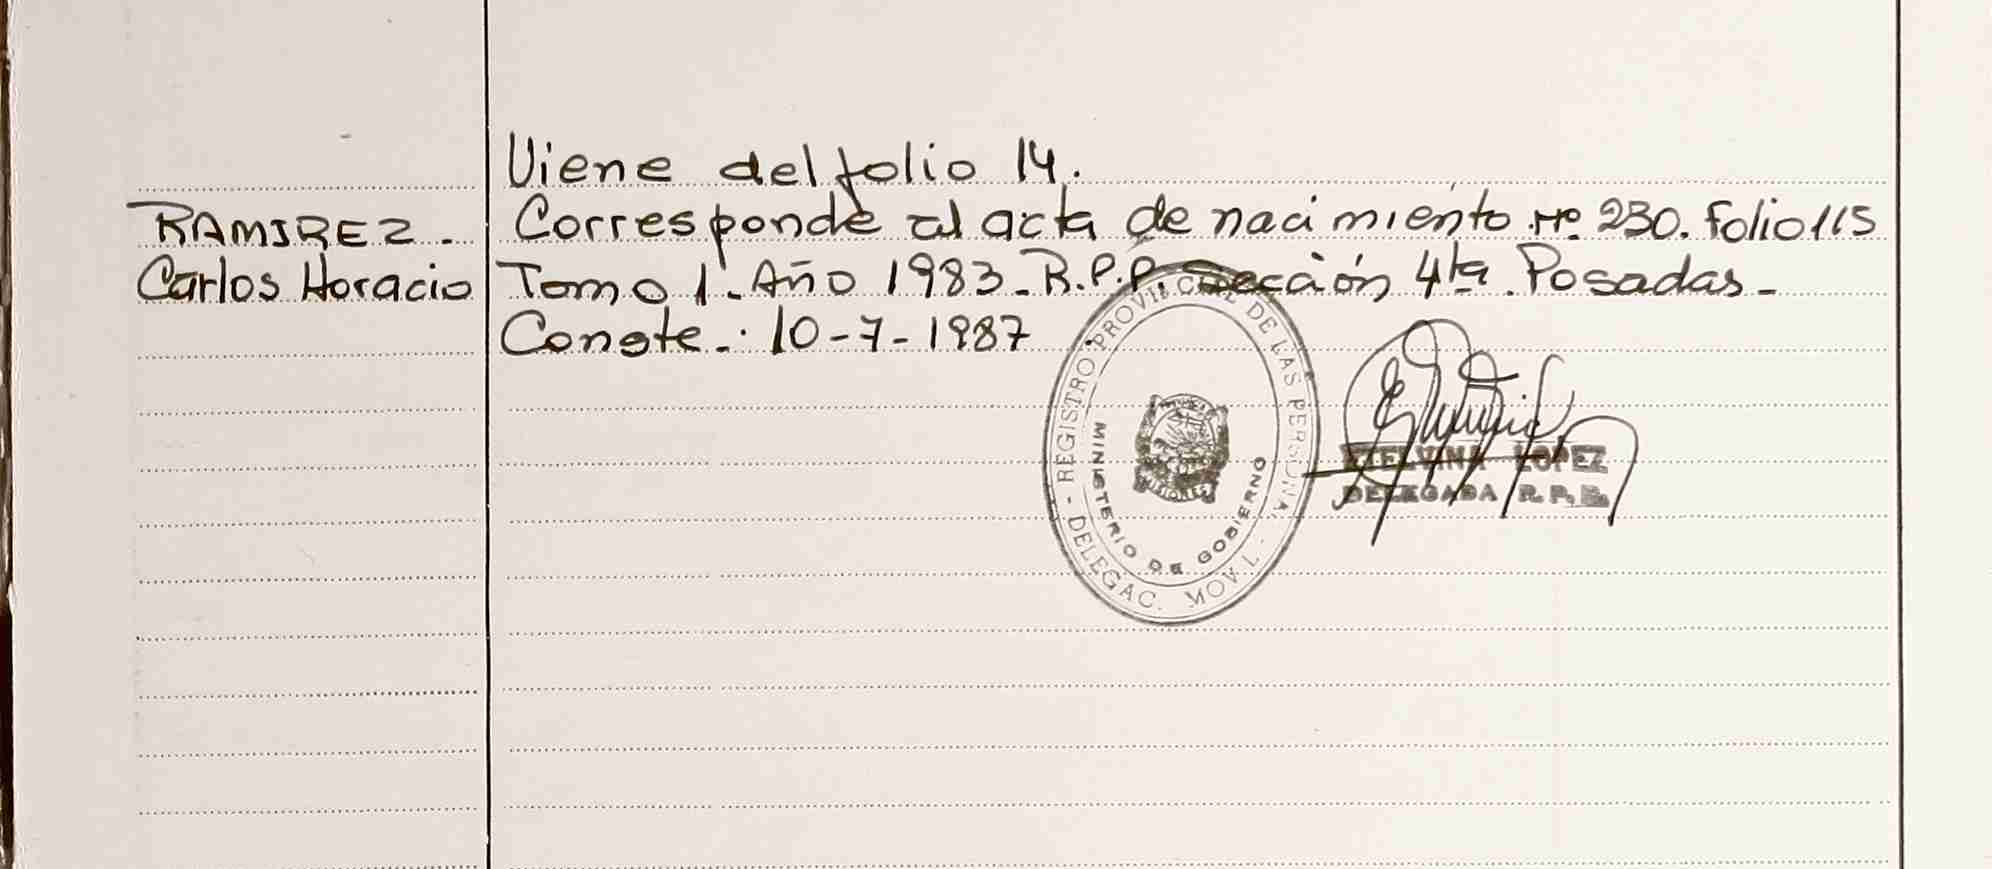 Viene del folio 14.
RAMIREZ.- Corresponde al acta de nacimiento Nº. 230. Folio 115
Carlos Horacio Tomo 1.- Año 1983.- R.P.P. Sección 4ta. Posadas.-
Conste.: 10-7-1987
- REGISTRO PROVINCIAL DE LAS PERSONAS - DELEGAC. MOVIL.
MINISTERIO DE GOBIERNO
MISIONES
ETELVINA LOPEZ
DELEGADA R.P.P.